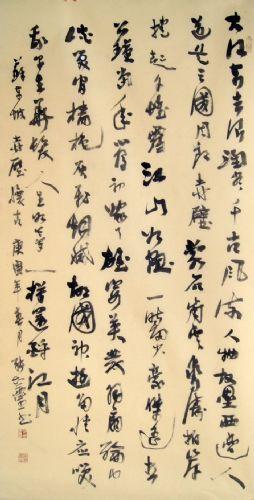 大江東去浪淘盡千古風流人物故壘西邊人
道是三國周郎赤壁亂石穿空驚濤拍岸
捲起千堆雪江山如畫一時多少豪傑遙想
公瑾當年小喬初嫁了雄姿英發羽扇綸巾
談笑間檣櫓灰飛煙滅故國神遊多情應笑
我早生華髮人生如夢一樽還酹江月
蘇東坡赤壁懷古庚寅年春月書